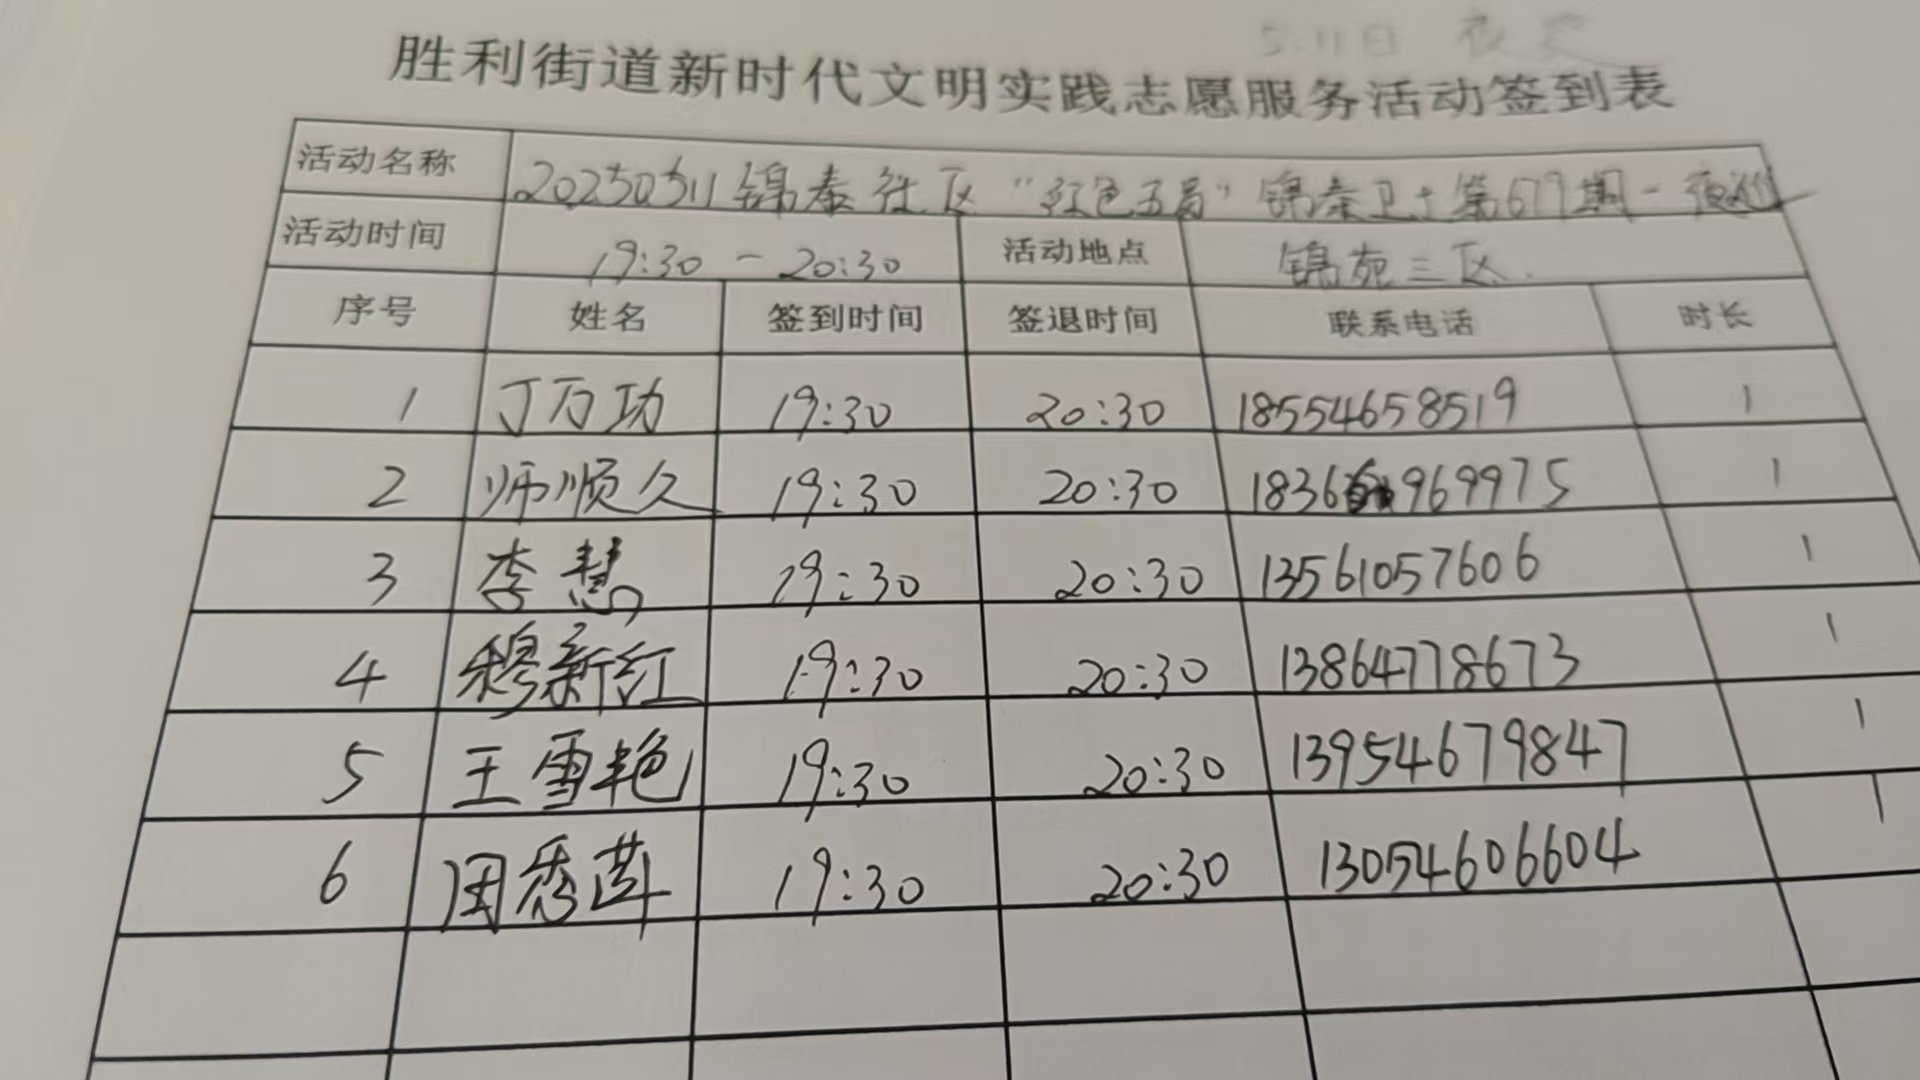 5.11日 夜
胜利街道新时代文明实践志愿服务活动签到表
活动名称 20250511锦泰社区“红色五哥”锦泰卫士第679期-夜巡
活动时间 19:30-20:30 活动地点 锦苑三区.
序号 姓名 签到时间 签退时间 联系电话 时长
1 丁万功 19:30 20:30 18554658519 1
2 师顺久 19:30 20:30 1836 969975 1
3 李慧 19:30 20:30 13561057606 1
4 穆新红 19:30 20:30 13864778673 1
5 王雪艳 19:30 20:30 13954679847 1
6 周秀 19:30 20:30 13054606604 1